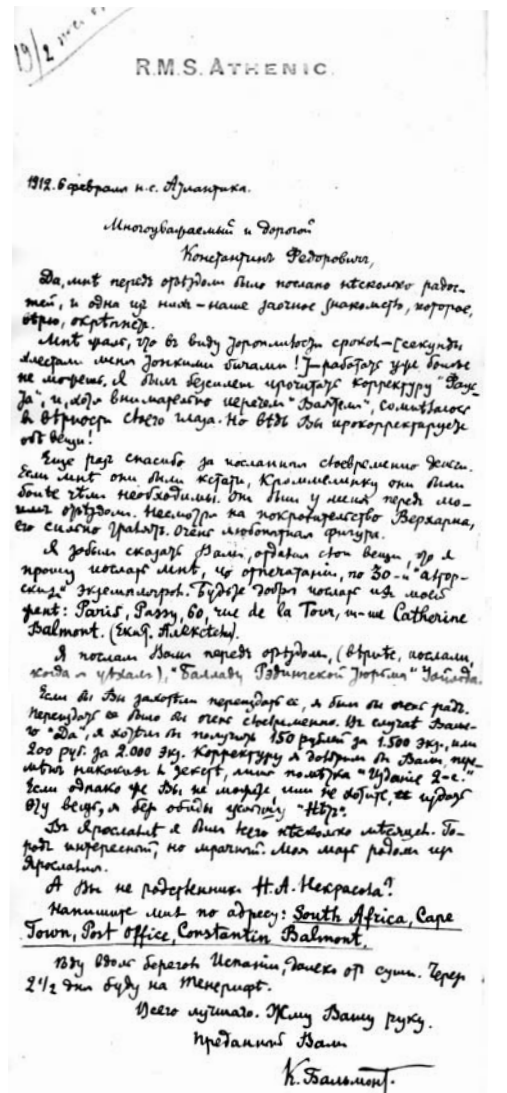 19/2
R.M.S. ATHENIC.
1912. 6 февраля н.с. Атлантика.
Многоуважаемый и дорогой
Константинъ Федоровичъ,
Да, мнѣ передъ отъѣздомъ было послано нѣсколько радос-
тей, и одна изъ нихъ – наше заочное знакомство, которое,
вѣрю, окрѣпнетъ.
Мнѣ жаль, что въ виду торопливости сроковъ – (секунды
хлестали меня тонкими бичами!) – работать уже больше
не можешь. Я былъ безсиленъ прочитать корректуру "Фаус-
та", и, хотя внимательно перечелъ "Ваятеля", сомнѣваюсь
въ вѣрности своего глаза. Но вѣдь Вы прокорректируете
обѣ вещи!
Еще разъ спасибо за посланныя своевременно деньги.
Если мнѣ они были кстати, Кроммелинку они были
болѣе чѣмъ необходимы. Онъ былъ у меня передъ мо-
имъ отъѣздомъ. Несмотря на покровительство Верхарна,
его сильно травятъ. Очень любопытная фигура.
Я забылъ сказать Вамъ, отдавая свои вещи, что я
прошу послать мнѣ, по отпечатаніи, по 30-и "автор-
скихъ" экземпляровъ. Будьте добры послать ихъ моей
женѣ: Paris, Passy, 60, rue de la Tour, m-me Catherine
Balmont. (Екат. Алексѣевн.).
Я послалъ Вамъ передъ отъѣздомъ, (вѣрнѣе, послали,
когда я уѣхалъ), "Балладу Рэдингской Тюрьмы" Уайльда.
Если бы Вы захотѣли переиздать ее, я былъ бы очень радъ.
Переиздать ее было бы очень своевременно. Въ случаѣ Ваше-
го "Да", я хотѣлъ бы получить 150 рублей за 1.500 экз., или
200 руб. за 2.000 экз. Корректуру я довѣрилъ бы Вамъ, пере-
мѣнъ никакихъ въ текстѣ, лишь помѣтка "Изданіе 2-е."
Если однако же Вы не можете или не хотите издать
эту вещь, я безъ обиды услышу "Нѣтъ".
Въ Ярославлѣ я былъ всего нѣсколько мѣсяцевъ. Го-
родъ интересный, но мрачный. Моя мать родомъ изъ
Ярославля.
А Вы не родственникъ Н.А. Некрасова?
Напишите мнѣ по адресу: South Africa, Cape
Town, Post office, Constantin Balmont.
Ѣду вдоль береговъ Испаніи, далеко отъ суши. Черезъ
2 1/2 дня буду на Тенерифѣ.
Всего лучшаго. Жму Вашу руку.
Преданный Вамъ
К. Бальмонтъ.